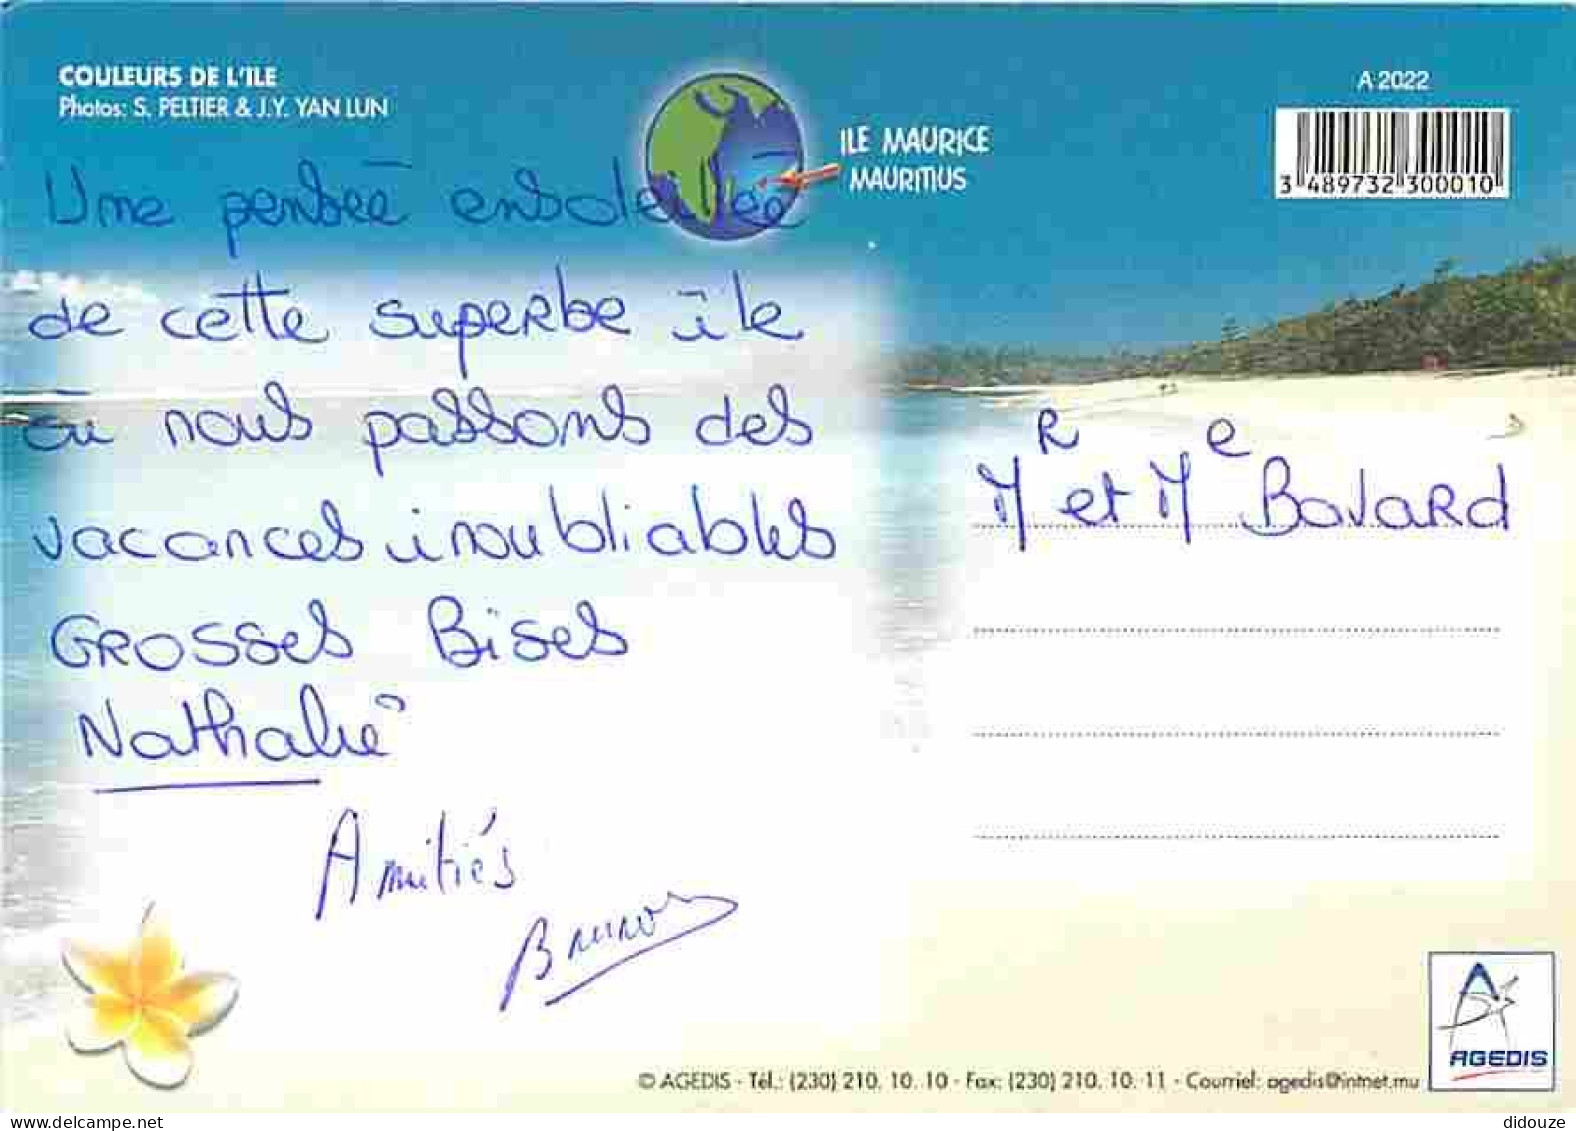 COULEURS DE L'ILE
Photos: S. PELTIER & J.Y. YAN LUN
ILE MAURICE
MAURITIUS
A 2022
3 489732 300010
Une pensée ensoleillée
de cette superbe île
où nous passons des
vacances inoubliables
GROSSES Bises
Nathalie
Amitiés
Bruno
MR et Me Bavard
© AGEDIS - Tél.: (230) 210. 10. 10 - Fax: (230) 210. 10. 11 - Courriel: agedis@intnet.mu
AGEDIS
didouze
delcampe.net